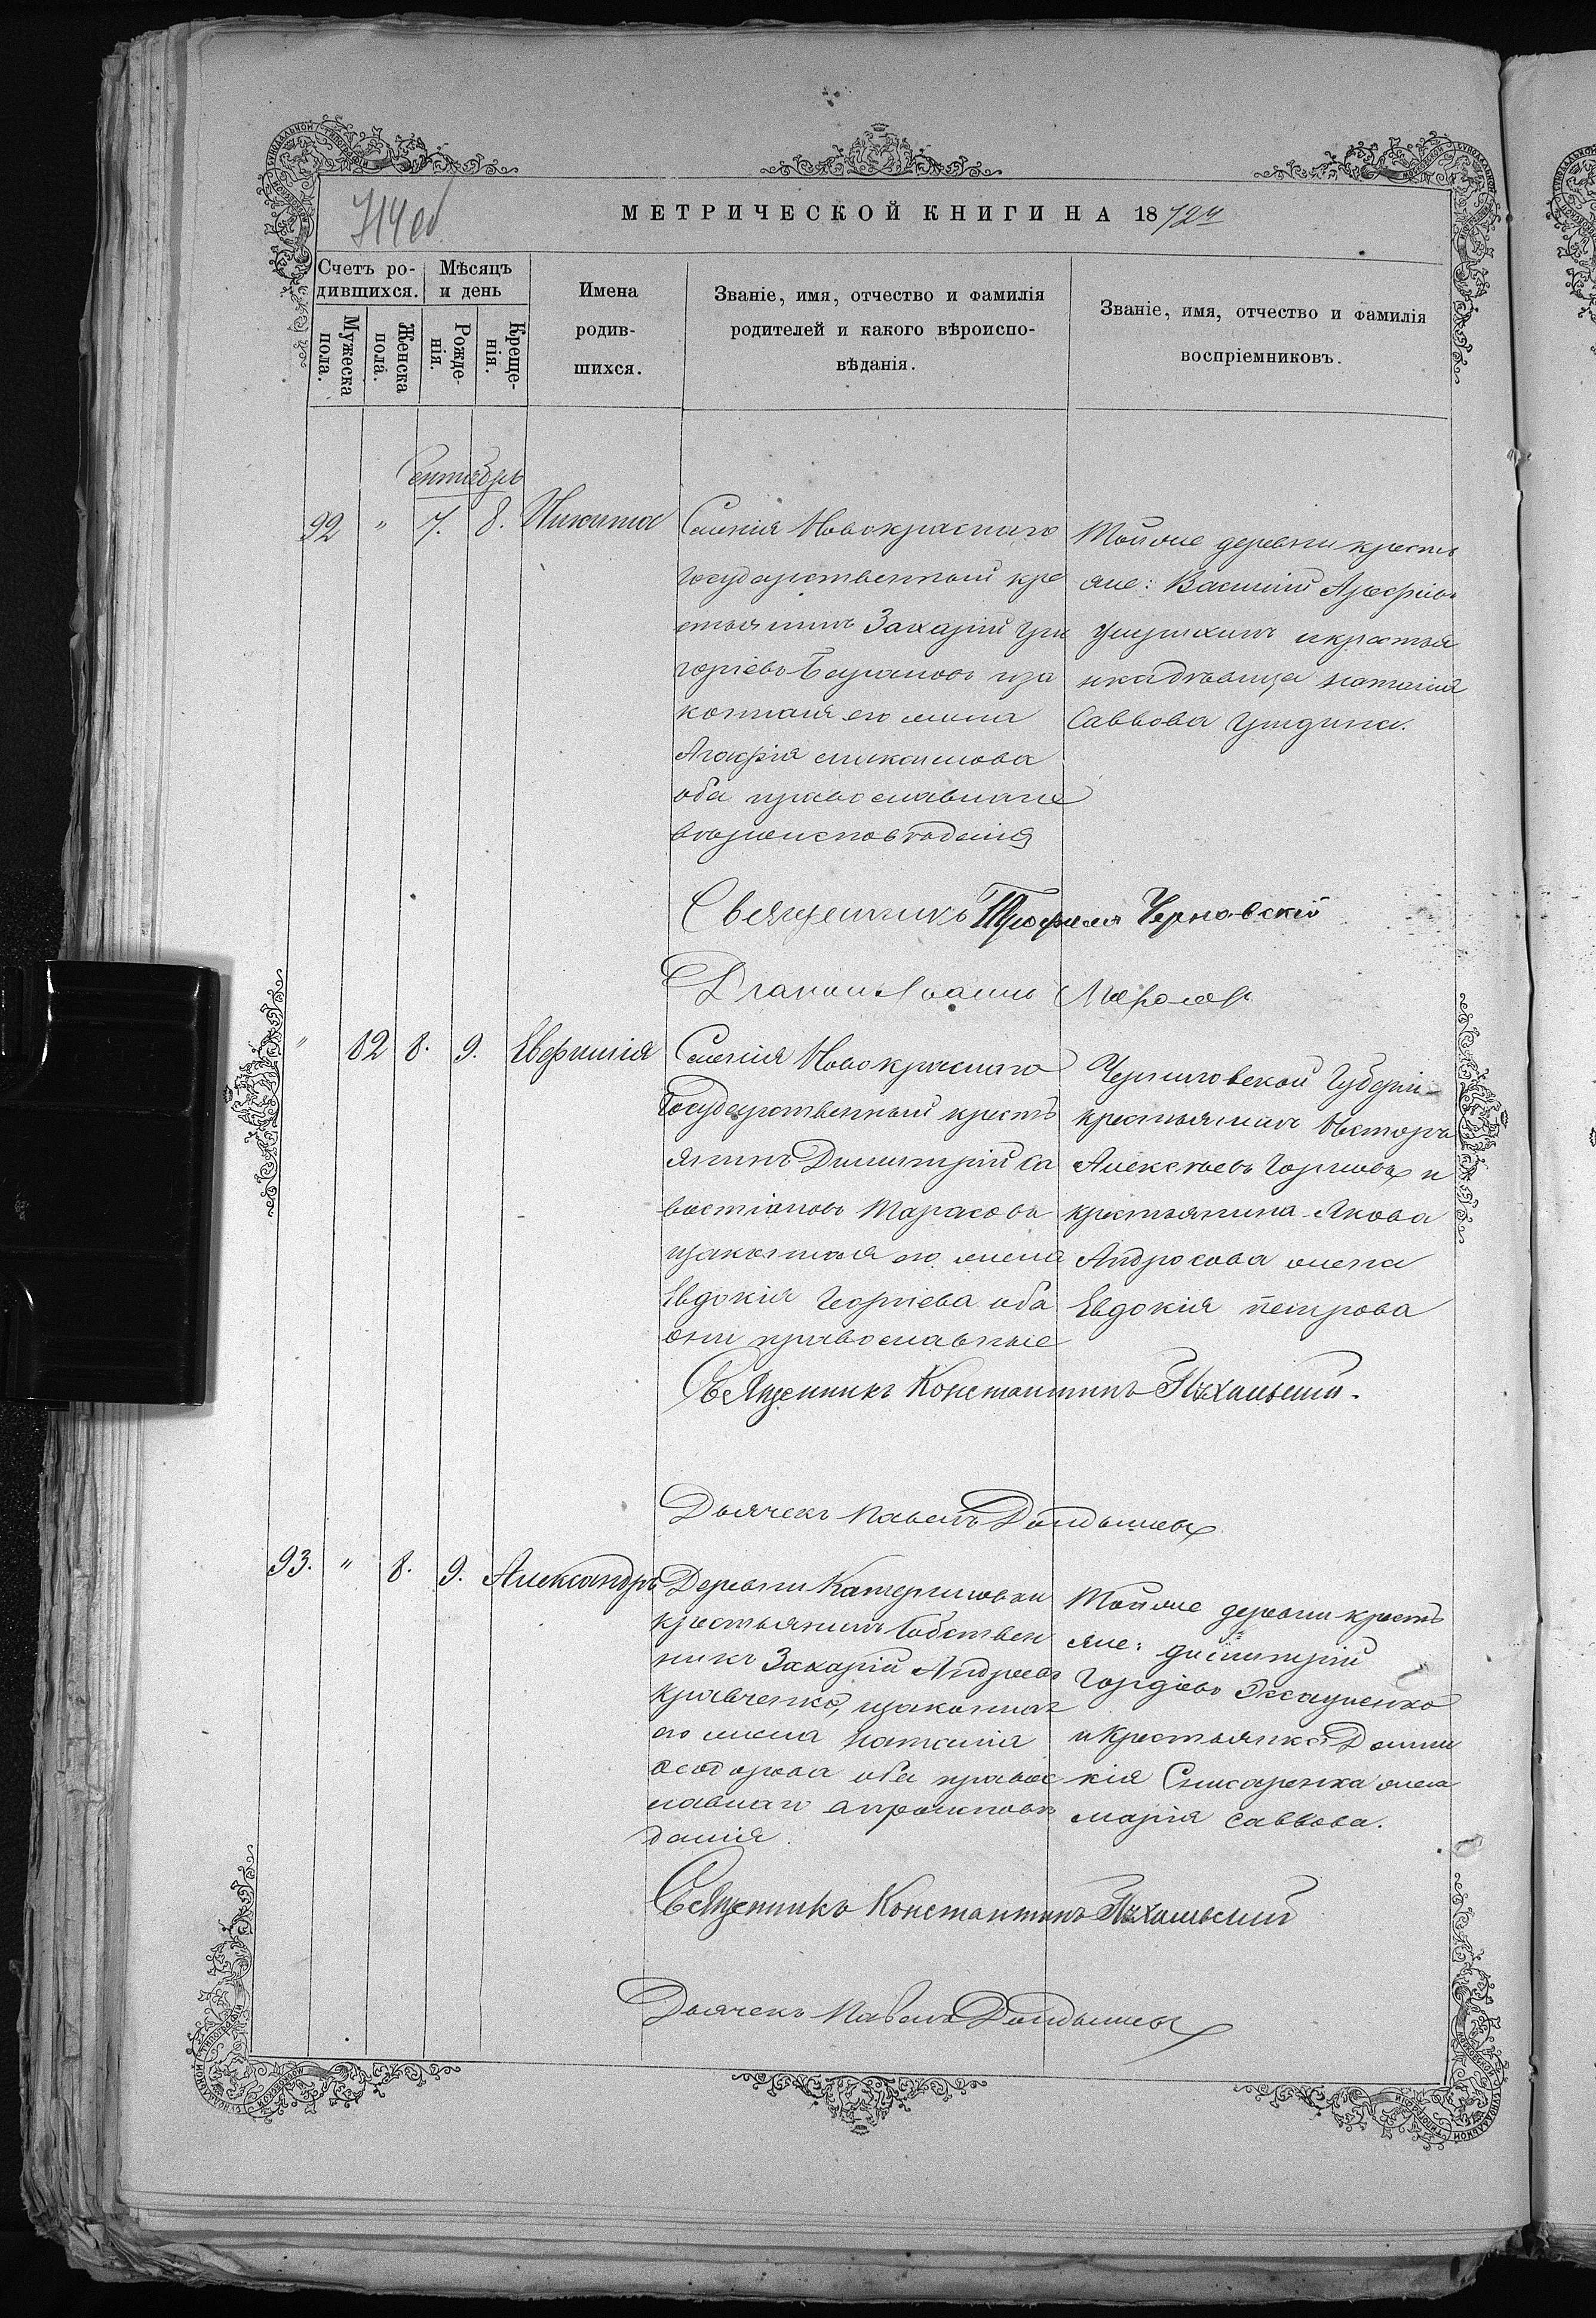 714об
МЕТРИЧЕСКОЙ КНИГИ НА 1872й
Счетъ ро-
дившихся.
Мѣсяцъ
и день
Мужеска
пола.
Женска
пола.
Рожде-
нія.
Креще-
нія.
Имена
родив-
шихся.
Званіе, имя, отчество и фамилія
родителей и какого вѣроиспо-
вѣданія.
Званіе, имя, отчество и фамилія
воспріемниковъ.
Сентябрь
92 " 7. 8. Никита
Селенія Новокраснаго
государственный кре
стьянинъ Захарій Гри
горіевъ иза
конная его жена
Агафія
оба православнаго
вѣроисповѣденія
Тойже деревни кресть
яне: Василій Арефіевъ
икрестья
нка дѣвица наталія
Саввова
Священникъ Трофимъ Черновскій
Діаконъ Іоаннъ
" 82 8. 9. Евфимія
Селенія Новокраснаго
Государственный кресть
янинъ Димитрій Са
востіановъ Тарасовъ
изаконная его жена
Евдокія Георгіева оба
они православные
Черниговской Губерніи
крестьянинъ Несторъ
Алексѣевъ и
крестьянина Якова
Андросова жена
Евдокія петрова
Священникъ Константинъ
Дьячекъ Павелъ
93. " 8. 9. Александръ
Деревни Катериновки
крестьянинъ Собствен
никъ Захарій Андреевъ
Кравченко, изаконная
его жена наталія
Ѳеодорова оба правос
лавнаго вѣроисповѣ
данія.
Тойже деревни кресть
яне: димитрій
Гордіевъ
и крестьянка
кія Снисаренка жена
марія Саввова.
Священникъ Константинъ
Дьячекъ Павелъ